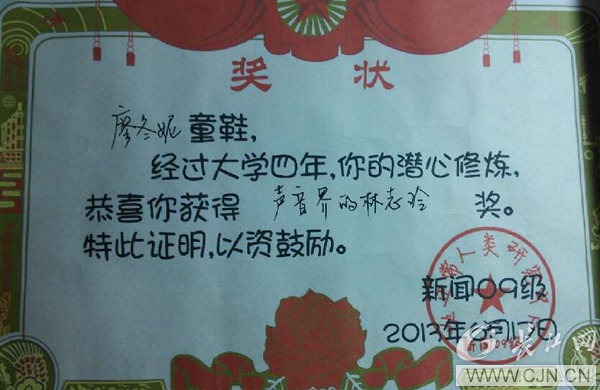 奖状
廖冬妮童鞋,
经过大学四年,你的潜心修炼,
恭喜你获得 声音界的林志玲 奖。
特此证明,以资鼓励。
新闻09级
2013年6月17日
人类研究
新闻09级
长江网
WWW.CJN.CN